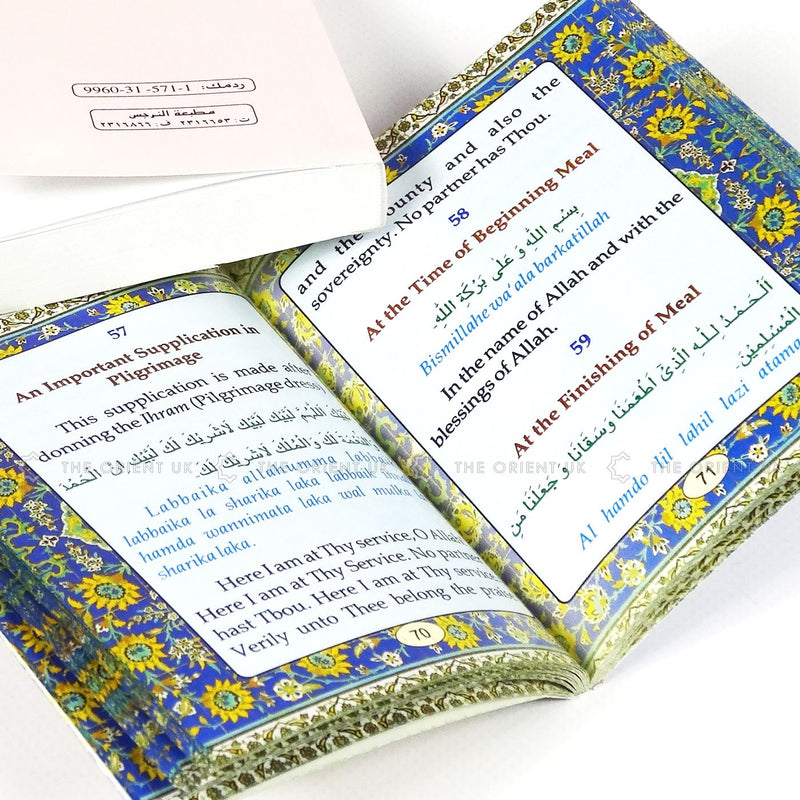 ردمك: 1-571-31-9960
مطبعة النرجس
ت: ٢٣١٦٦٥٣ ف: ٢٣١٦٨٦٦
57
An Important Supplication in
Pligrimage
This supplication is made after
donning the Ihram (Pilgrimage dress)
لَبَّيْكَ اللّٰهُمَّ لَبَّيْكَ لَبَّيْكَ لَا شَرِيْكَ لَكَ لَبَّيْكَ اِنَّ الْحَمْدَ
لَكَ وَالْمُلْكَ لَا شَرِيْكَ لَكَ
Labbaika allahumma labba
labbaika la sharika laka labbaik
hamda wannimata laka wal mulka
sharika laka.
Here I am at Thy service, O Allah
Here I am at Thy Service. No partner
hast Tbou. Here I am at Thy service
Verily unto Thee belong the praise
70
and the bounty and also the
sovereignty. No partner has Thou.
58
At the Time of Beginning Meal
بِسْمِ اللّٰهِ وَ عَلٰى بَرَكَةِ اللّٰهِ
Bismillahe wa'ala barkatillah
In the name of Allah and with the
blessings of Allah.
59
At the Finishing of Meal
اَلْحَمْدُ لِلّٰهِ الَّذِىْ اَطْعَمَنَا وَسَقَانَا وَ جَعَلَنَا مِنَ
الْمُسْلِمِيْنَ۔
Al hamdo lil lahil lazi atama
71
THE ORIENT UK THE ORIENT UK THE ORIENT UK THE ORIENT